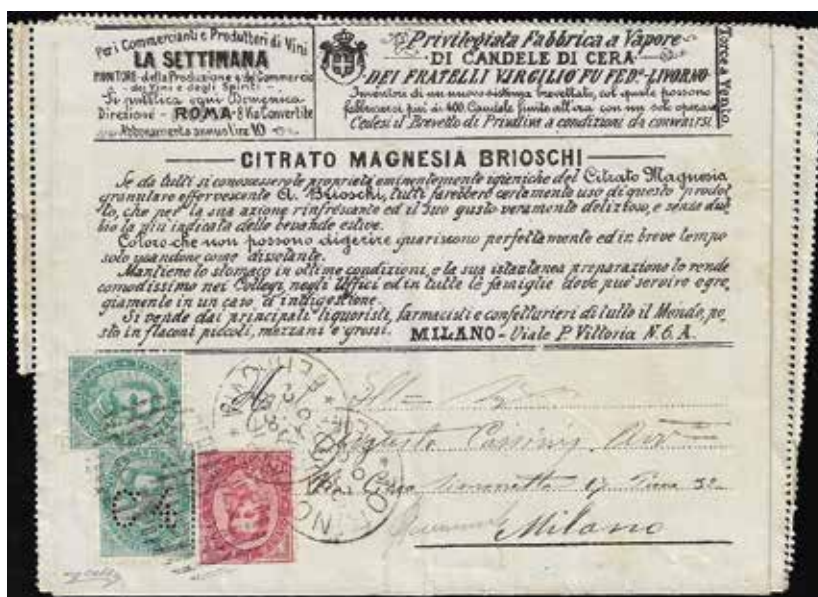 Per i Commercianti e Produttori di Vini
LA SETTIMANA
MONITORE della Produzione e del Commercio
dei Vini e degli Spiriti
Si pubblica ogni Domenica
Direzione - ROMA - 8 Via Convertite
Abbonamento annuo lire 10
Privilegiata Fabbrica a Vapore
DI CANDELE DI CERA
DEI FRATELLI VIRGILIO FU FEDº - LIVORNO
Inventori di un nuovo sistema brevettato, col quale possono
fabbricarsi più di 400 Candele finite all'ora con un solo operaio
Cedesi il Brevetto di Privativa a condizioni da convenirsi
Torce a Vento
CITRATO MAGNESIA BRIOSCHI
Se da tutti si conoscessero le proprietà eminentemente igieniche del Citrato Magnesia
granulare effervescente A. Brioschi, tutti farebbero certamente uso di questo prodot
to, che per la sua azione rinfrescante ed il suo gusto veramente delizioso, e senza dub
bio la più indicata delle bevande estive.
Coloro che non possono digerire guariscono perfettamente ed in breve tempo
solo usandone come dissetante.
Mantiene lo stomaco in ottime condizioni, e la sua istantanea preparazione lo rende
comodissimo nei Collegi, negli Uffici ed in tutte le famiglie dove può servire egre
giamente in un caso d'indigestione.
Si vende dai principali liquoristi, farmacisti e confetturieri di tutto il Mondo, po
sto in flaconi piccoli, mezzani e grossi. MILANO - Viale P. Vittoria N. 6. A.
Ill
Augusto
Milano